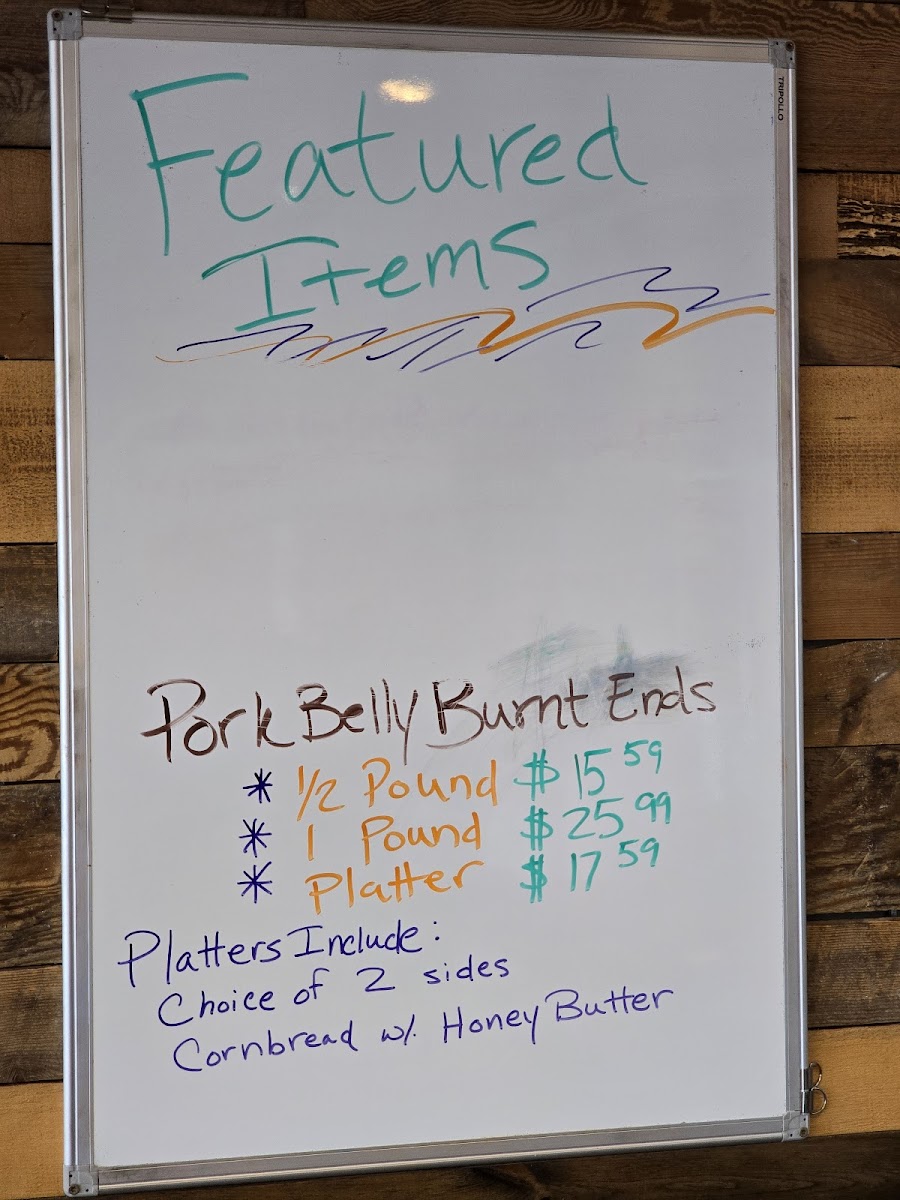 TRIPOLLO
Featured
Items
Pork Belly Burnt Ends
* 1/2 Pound $ 15 59
* 1 Pound $ 25 99
* Platter $ 17 59
Platters Include:
Choice of 2 sides
Cornbread w/. Honey Butter